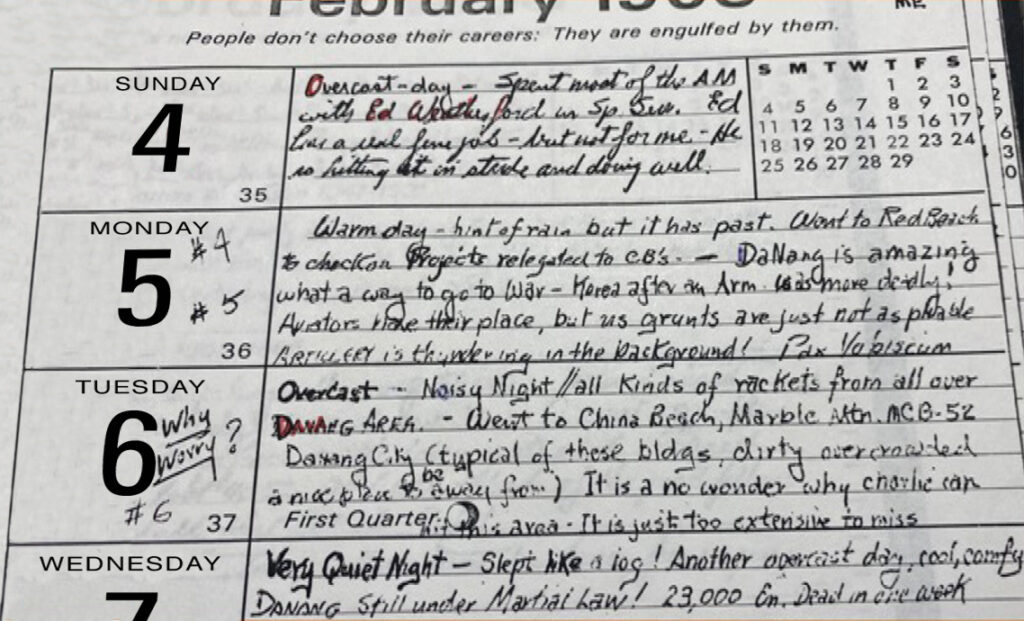 February 1968
ME
People don't choose their careers: They are engulfed by them.
SUNDAY
4
35
Overcast-day - Spent most of the AM
with Ed Weatherford in Sp. Ser. Ed
has a real fine job - but not for me - He
is hitting it in stride and doing well.
S M T W T F S
1 2 3
4 5 6 7 8 9 10
11 12 13 14 15 16 17
18 19 20 21 22 23 24
25 26 27 28 29
MONDAY
5
#4
#5
36
Warm day - hint of rain but it has past. Went to Red Beach
to check on Projects relegated to CB's. - DaNang is amazing
what a way to go to War - Korea after an Arm. was more deadly!
Aviators have their place, but us grunts are just not as pliable
ARTILLERY is thundering in the background! Pax Vobiscum
TUESDAY
6
Why
Worry?
#6
37
Overcast - Noisy Night // all Kinds of rockets from all over
DANANG AREA. - Went to China Beach, Marble Mtn. MCB-52
Danang City (typical of these bldgs, dirty overcrowded
a nice place to be away from) It is a no wonder why charlie can
First Quarter
hit this area - It is just too extensive to miss
WEDNESDAY
7
Very Quiet Night - Slept like a log! Another overcast day, cool, comfy
DANANG Still under Martial Law! 23,000 En. Dead in one week